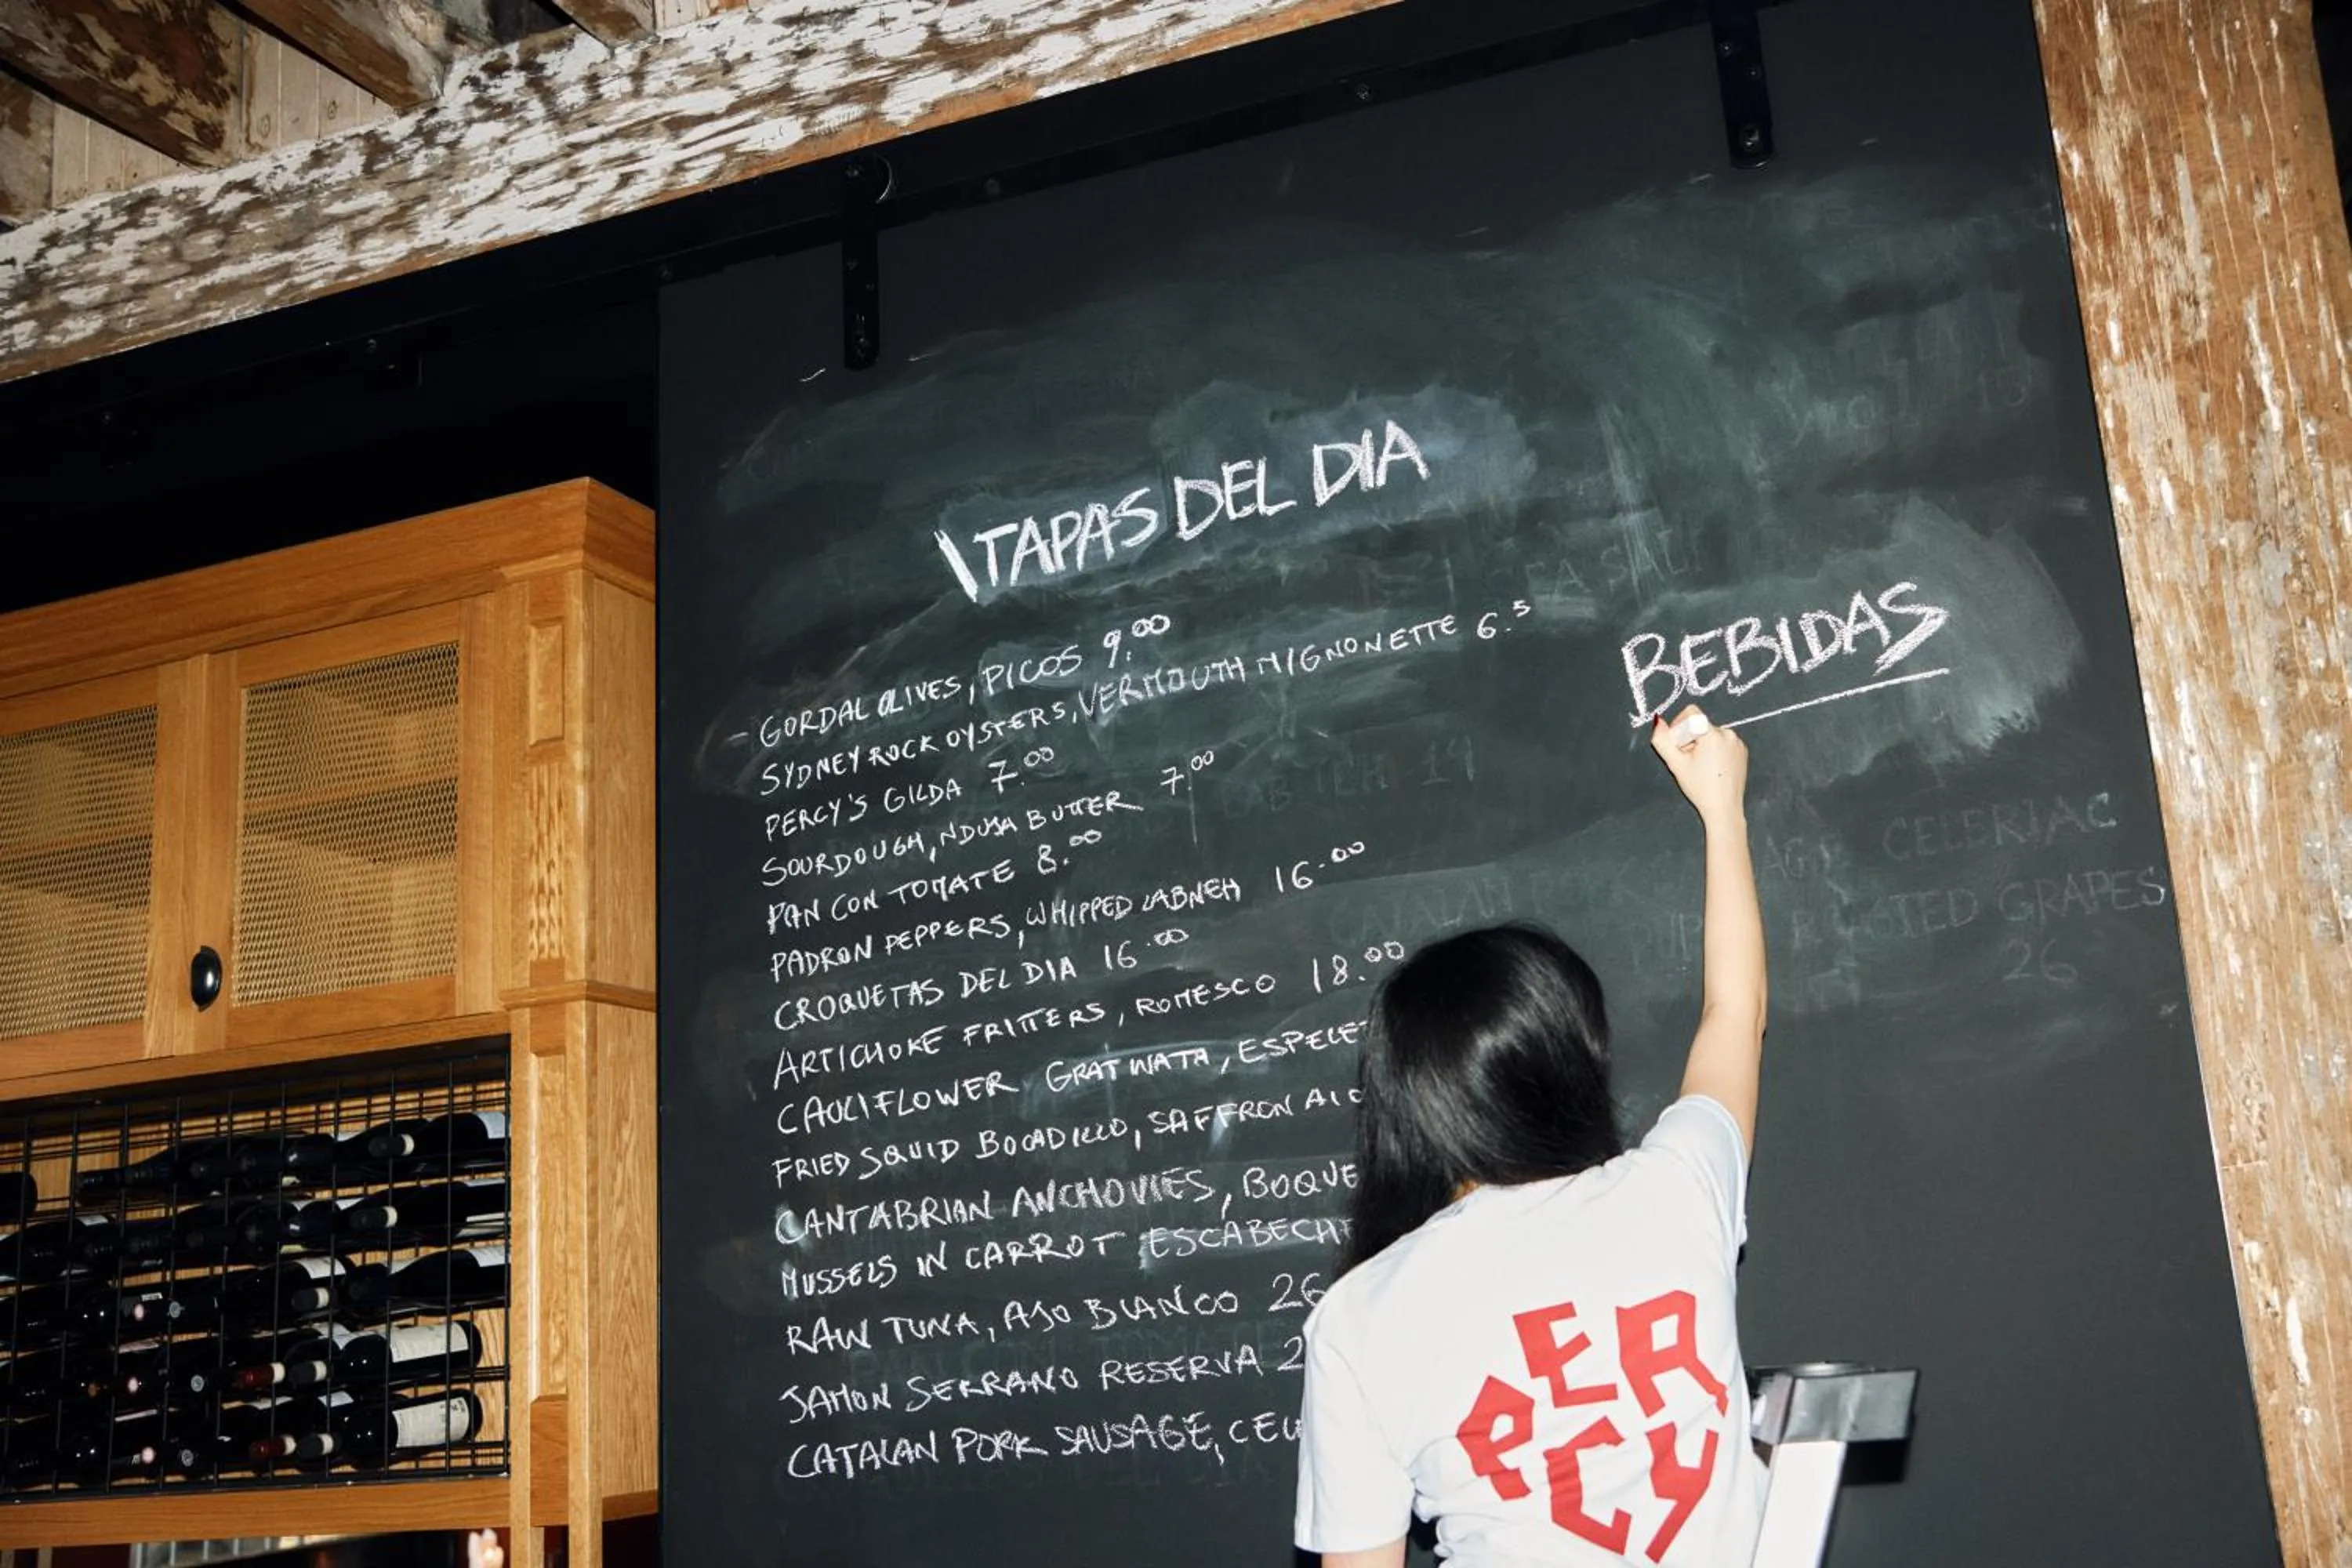 TAPAS DEL DIA
GORDAL OLIVES, PICOS 9.00
SYDNEY ROCK OYSTERS, VERMOUTH MIGNONETTE 6.5
PERCY'S GILDA 7.00
SOURDOUGH, NDUJA BUTTER 7.00
PAN CON TOMATE 8.00
PADRON PEPPERS, WHIPPED LABNEH 16.00
CROQUETAS DEL DIA 16.00
ARTICHOKE FRITTERS, ROMESCO 18.00
CAULIFLOWER GRATINATA,
FRIED SQUID BOCADILLO, SAFFRON
CANTABRIAN ANCHOVIES,
MUSSELS IN CARROT
RAW TUNA, AJO BLANCO 26
JAMON SERRANO RESERVA
CATALAN PORK SAUSAGE,
BEBIDAS
SEA SALT
CELERIAC
ROASTED GRAPES
26
PERCY